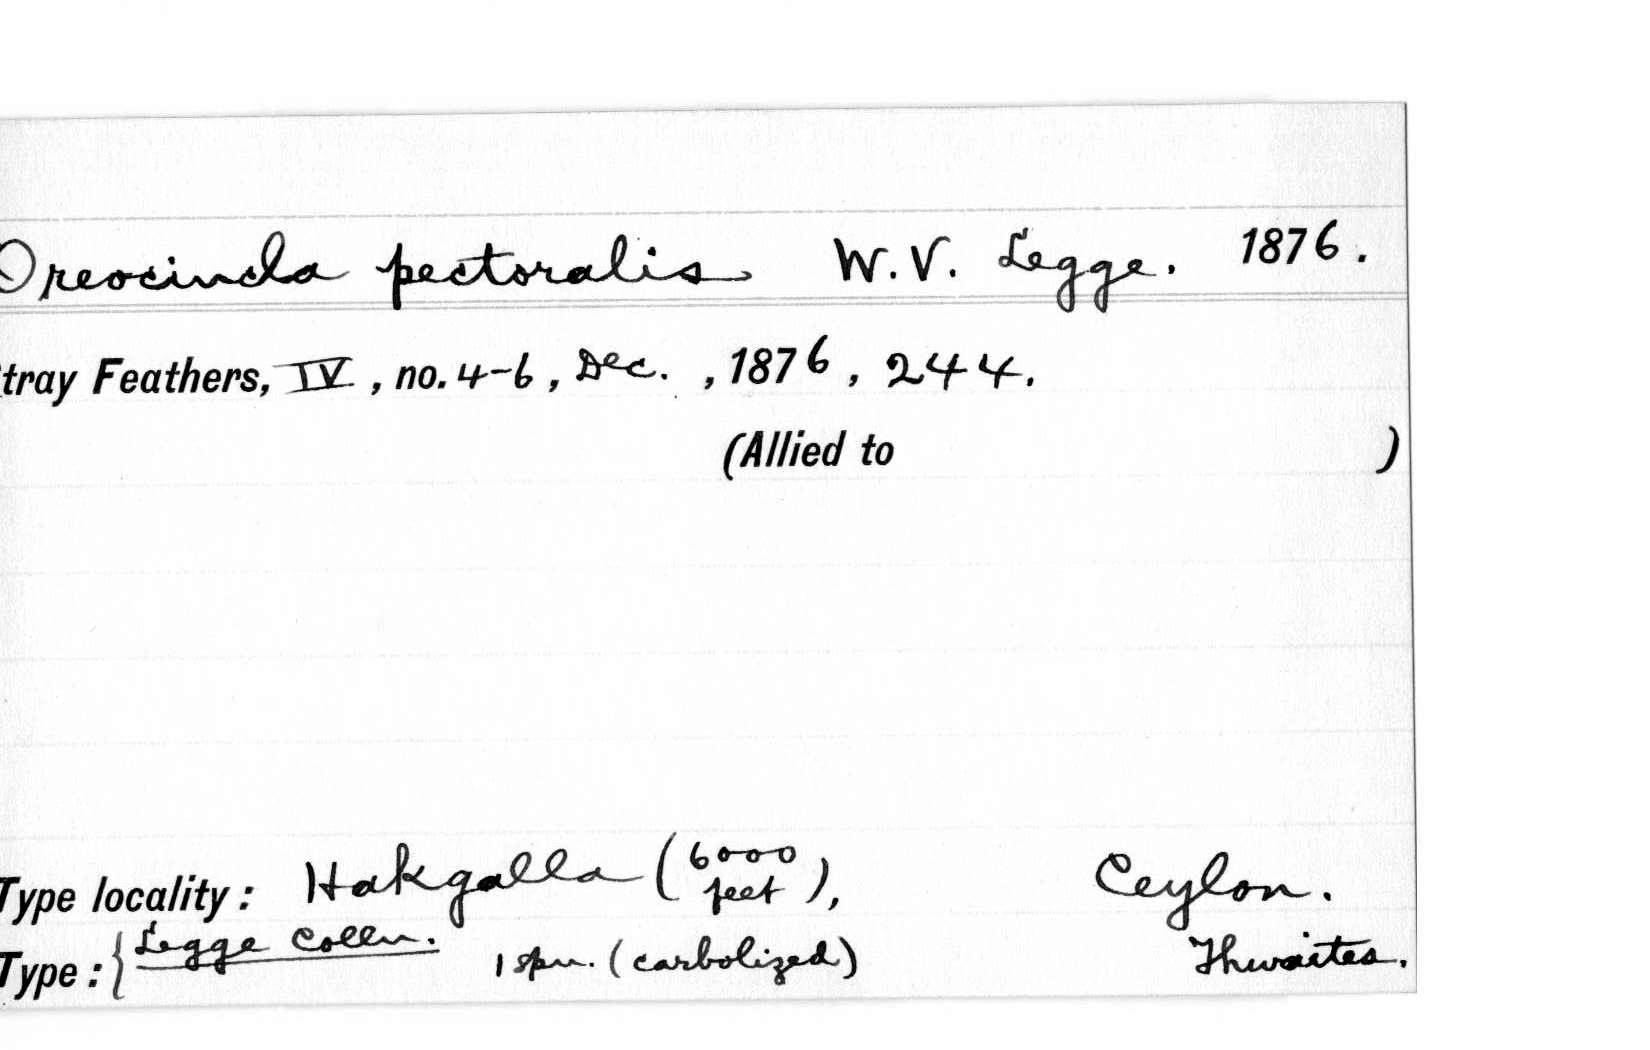 Oreocincla pectoralis W.V. Legge. 1876.
tray Feathers, IV, no. 4-6, Dec. , 1876, 244.
(Allied to )
Type locality: Hakgalla (6000 feet), Ceylon.
Type: { Legge Colln. 1 spn. (carbolized) Thwaites.